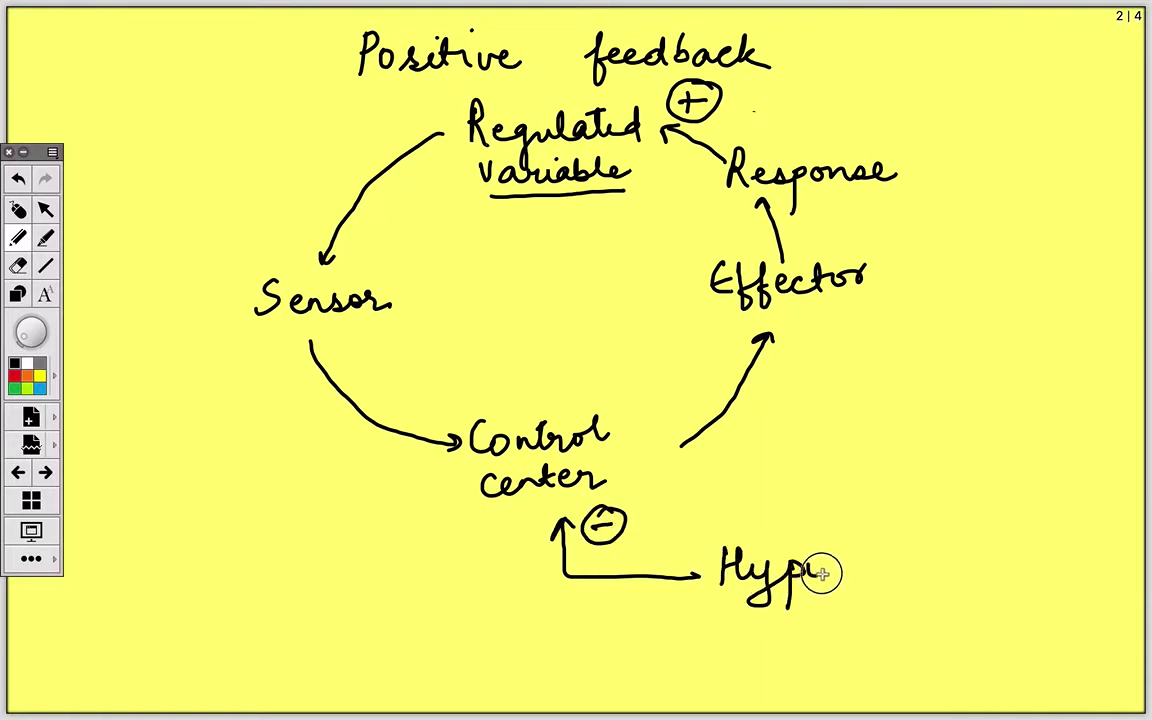 2 | 4
Positive feedback
Regulated
variable
+
Response
Sensor
Effector
Control
center
−
Hyp
A